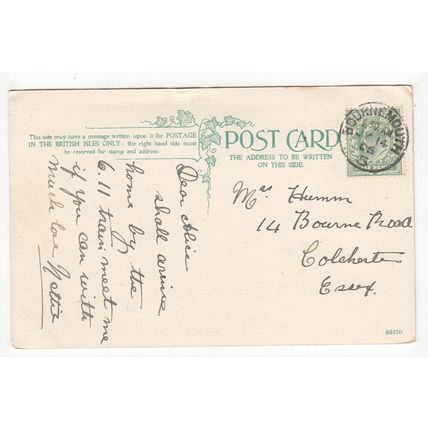 This side may have a message written upon it for POSTAGE
IN THE BRITISH ISLES ONLY: the right hand side must
be reserved for stamp and address.
POST CARD
THE ADDRESS TO BE WRITTEN
ON THIS SIDE.
BOURNEMOUTH
Dear Alice
shall arrive
home by the
6.11 train meet me
if you can with
much love Nettie
Mrs Humm
14 Bourne Road
Colchester
Essex.
68370